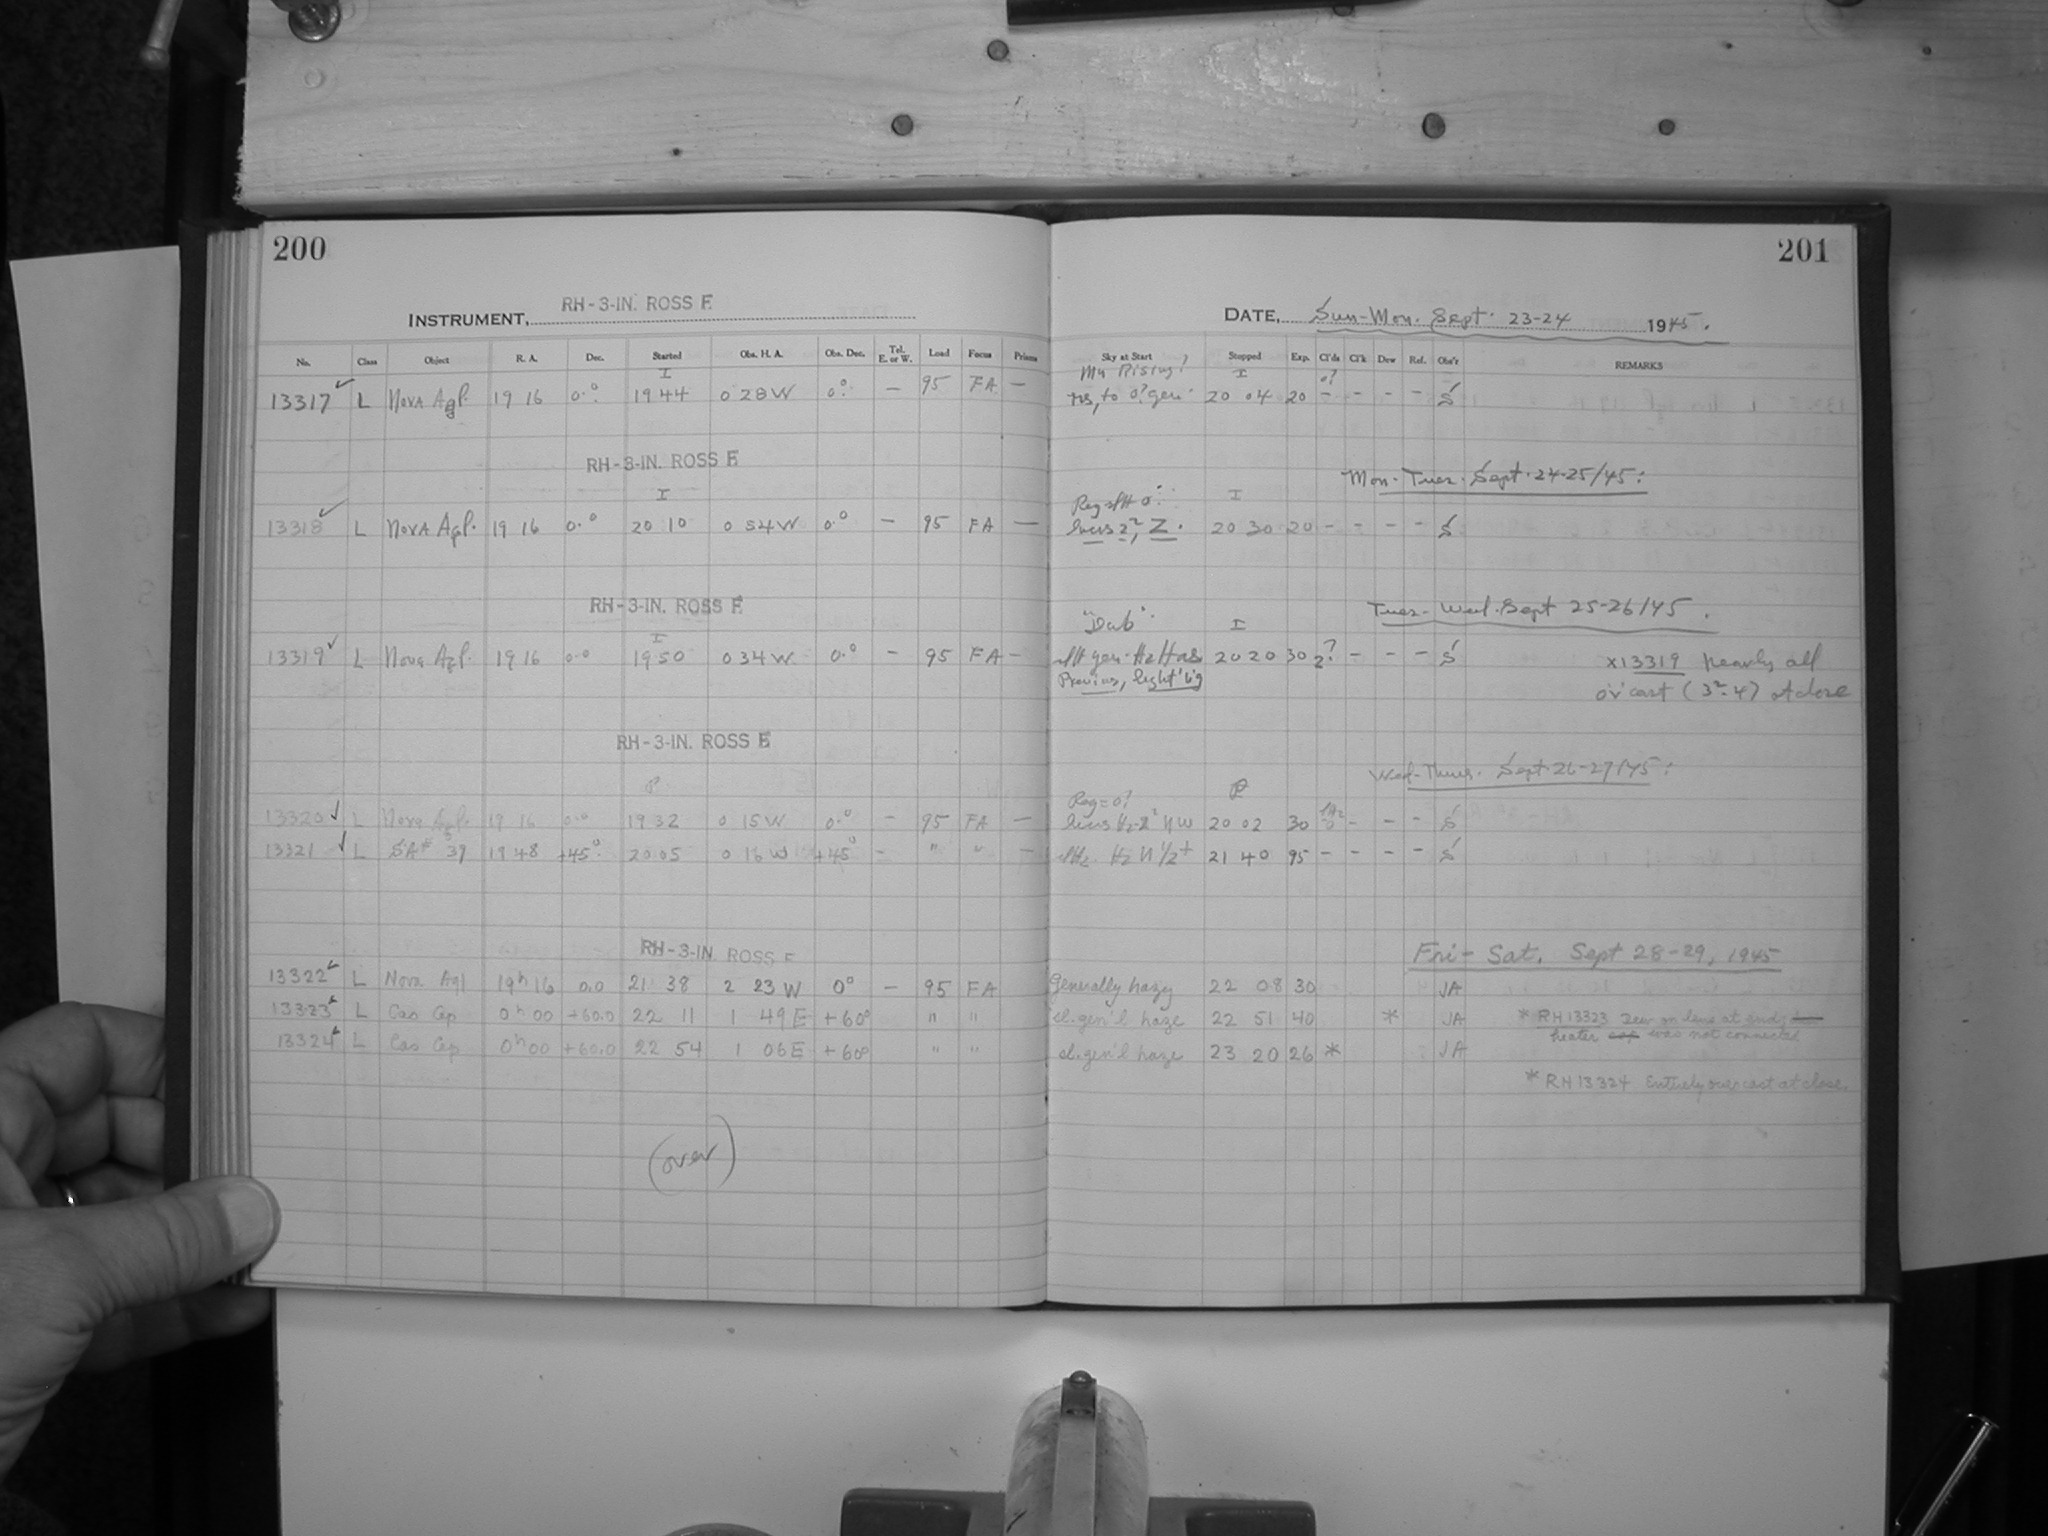 200
201
INSTRUMENT, RH-3-IN. ROSS F.
DATE, Sun-Mon. Sept. 23-24 1945.
No. Class Object R. A. Dec. Started Obs. H. A. Obs. Dec. Tel. E. or W. Load Focus Prisms Sky at Start Stopped Exp. Cl'ds Cl'k Dew Ref. Obs'r REMARKS
I Mn Rising, I 0?
13317 L Nova Aql. 19 16 0.° 19 44 0 28 W 0° — 95 FA — to 0? gen. 20 04 20 - - - - S
RH-3-IN. ROSS F.
Mon-Tues. Sept. 24-25/45:
I I
13318 L Nova Aql. 19 16 0.° 20 10 0 54 W 0.° — 95 FA — 2², Z. 20 30 20 - - - - S
RH-3-IN. ROSS F.
Tues-Wed. Sept 25-26/45.
I "Dab". I
13319 L Nova Aql. 19 16 0.0 19 50 0 34 W 0.° — 95 FA — 20 20 30 2? - - - S x13319 nearly all
Previous, light'g ov'cast (3²-4) at close
RH-3-IN. ROSS F.
Wed-Thurs. Sept. 26-27/45:
P Reg=0? P
13320 L Nova Aql. 19 16 0.0 19 32 0 15 W 0.° — 95 FA — NW 20 02 30 - - - S
13321 L SA# 39 19 48 +45° 20 05 0 16 W +45° — " " — N 1/2 + 21 40 95 - - - - S
RH-3-IN. ROSS F
Fri-Sat. Sept 28-29, 1945
13322 L Nova Aql 19h 16 0.0 21 38 2 23 W 0° — 95 FA Generally hazy 22 08 30 JA
13323 L Cas Cep 0h 00 +60.0 22 11 1 49 E +60° " " sl. gen'l haze 22 51 40 * JA * RH 13323 Dew on lens at end;
heater was not connected
13324 L Cas Cep 0h 00 +60.0 22 54 1 06 E +60° " " sl. gen'l haze 23 20 26 * JA
* RH 13324 Entirely overcast at close
(over)